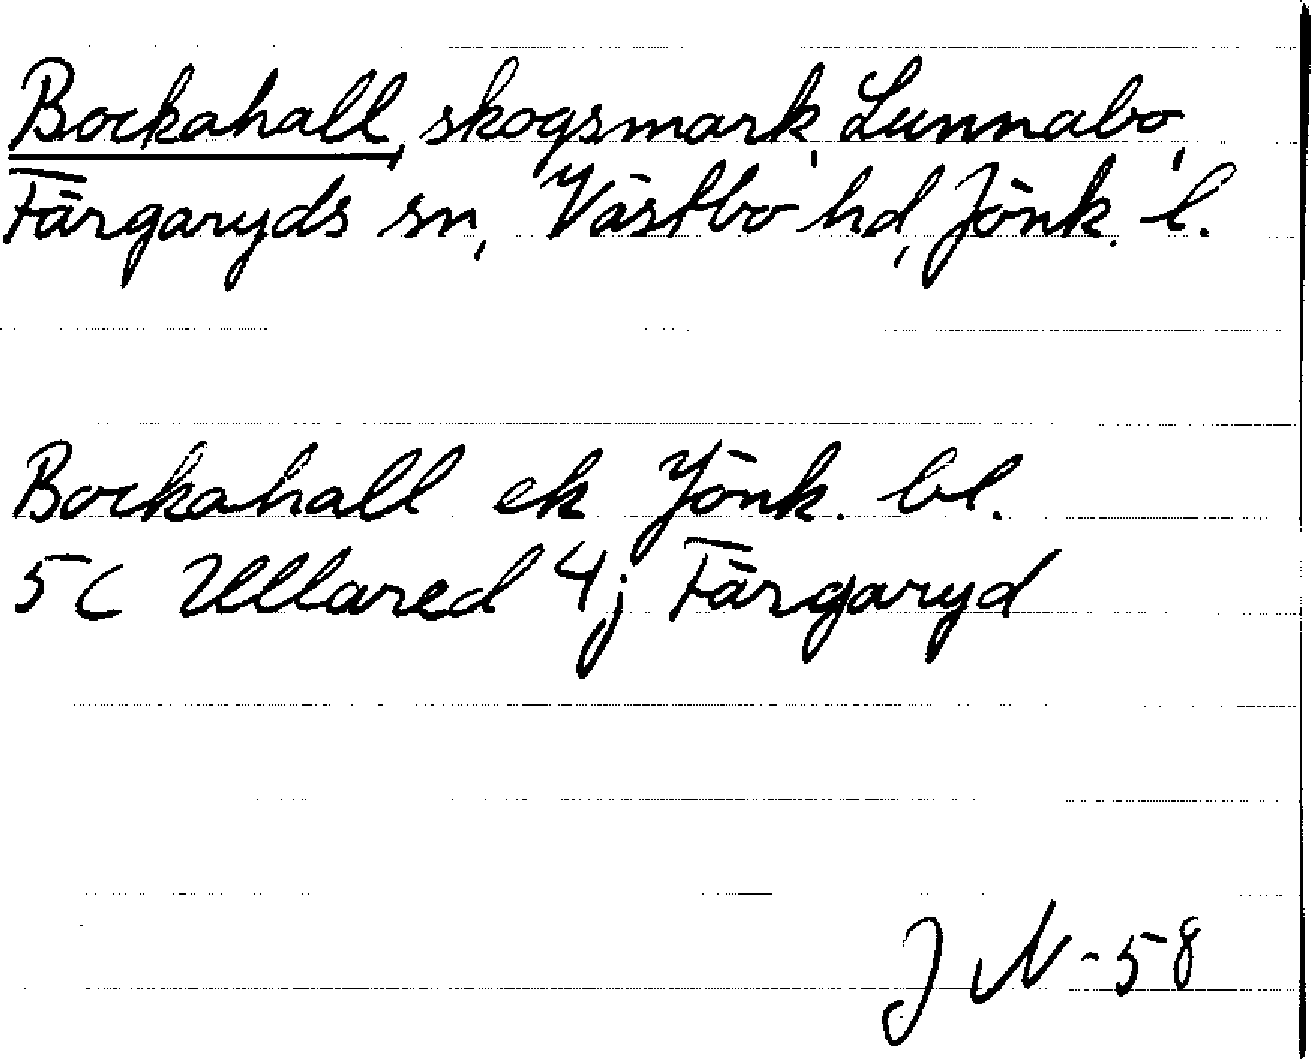 Bockahall, skogsmark, Lunnabo,
Färgaryds sn, Västbo hd, Jönk. l.
Bockahall ek Jönk. bl.
5C Ullared 4j Färgaryd
JN-58